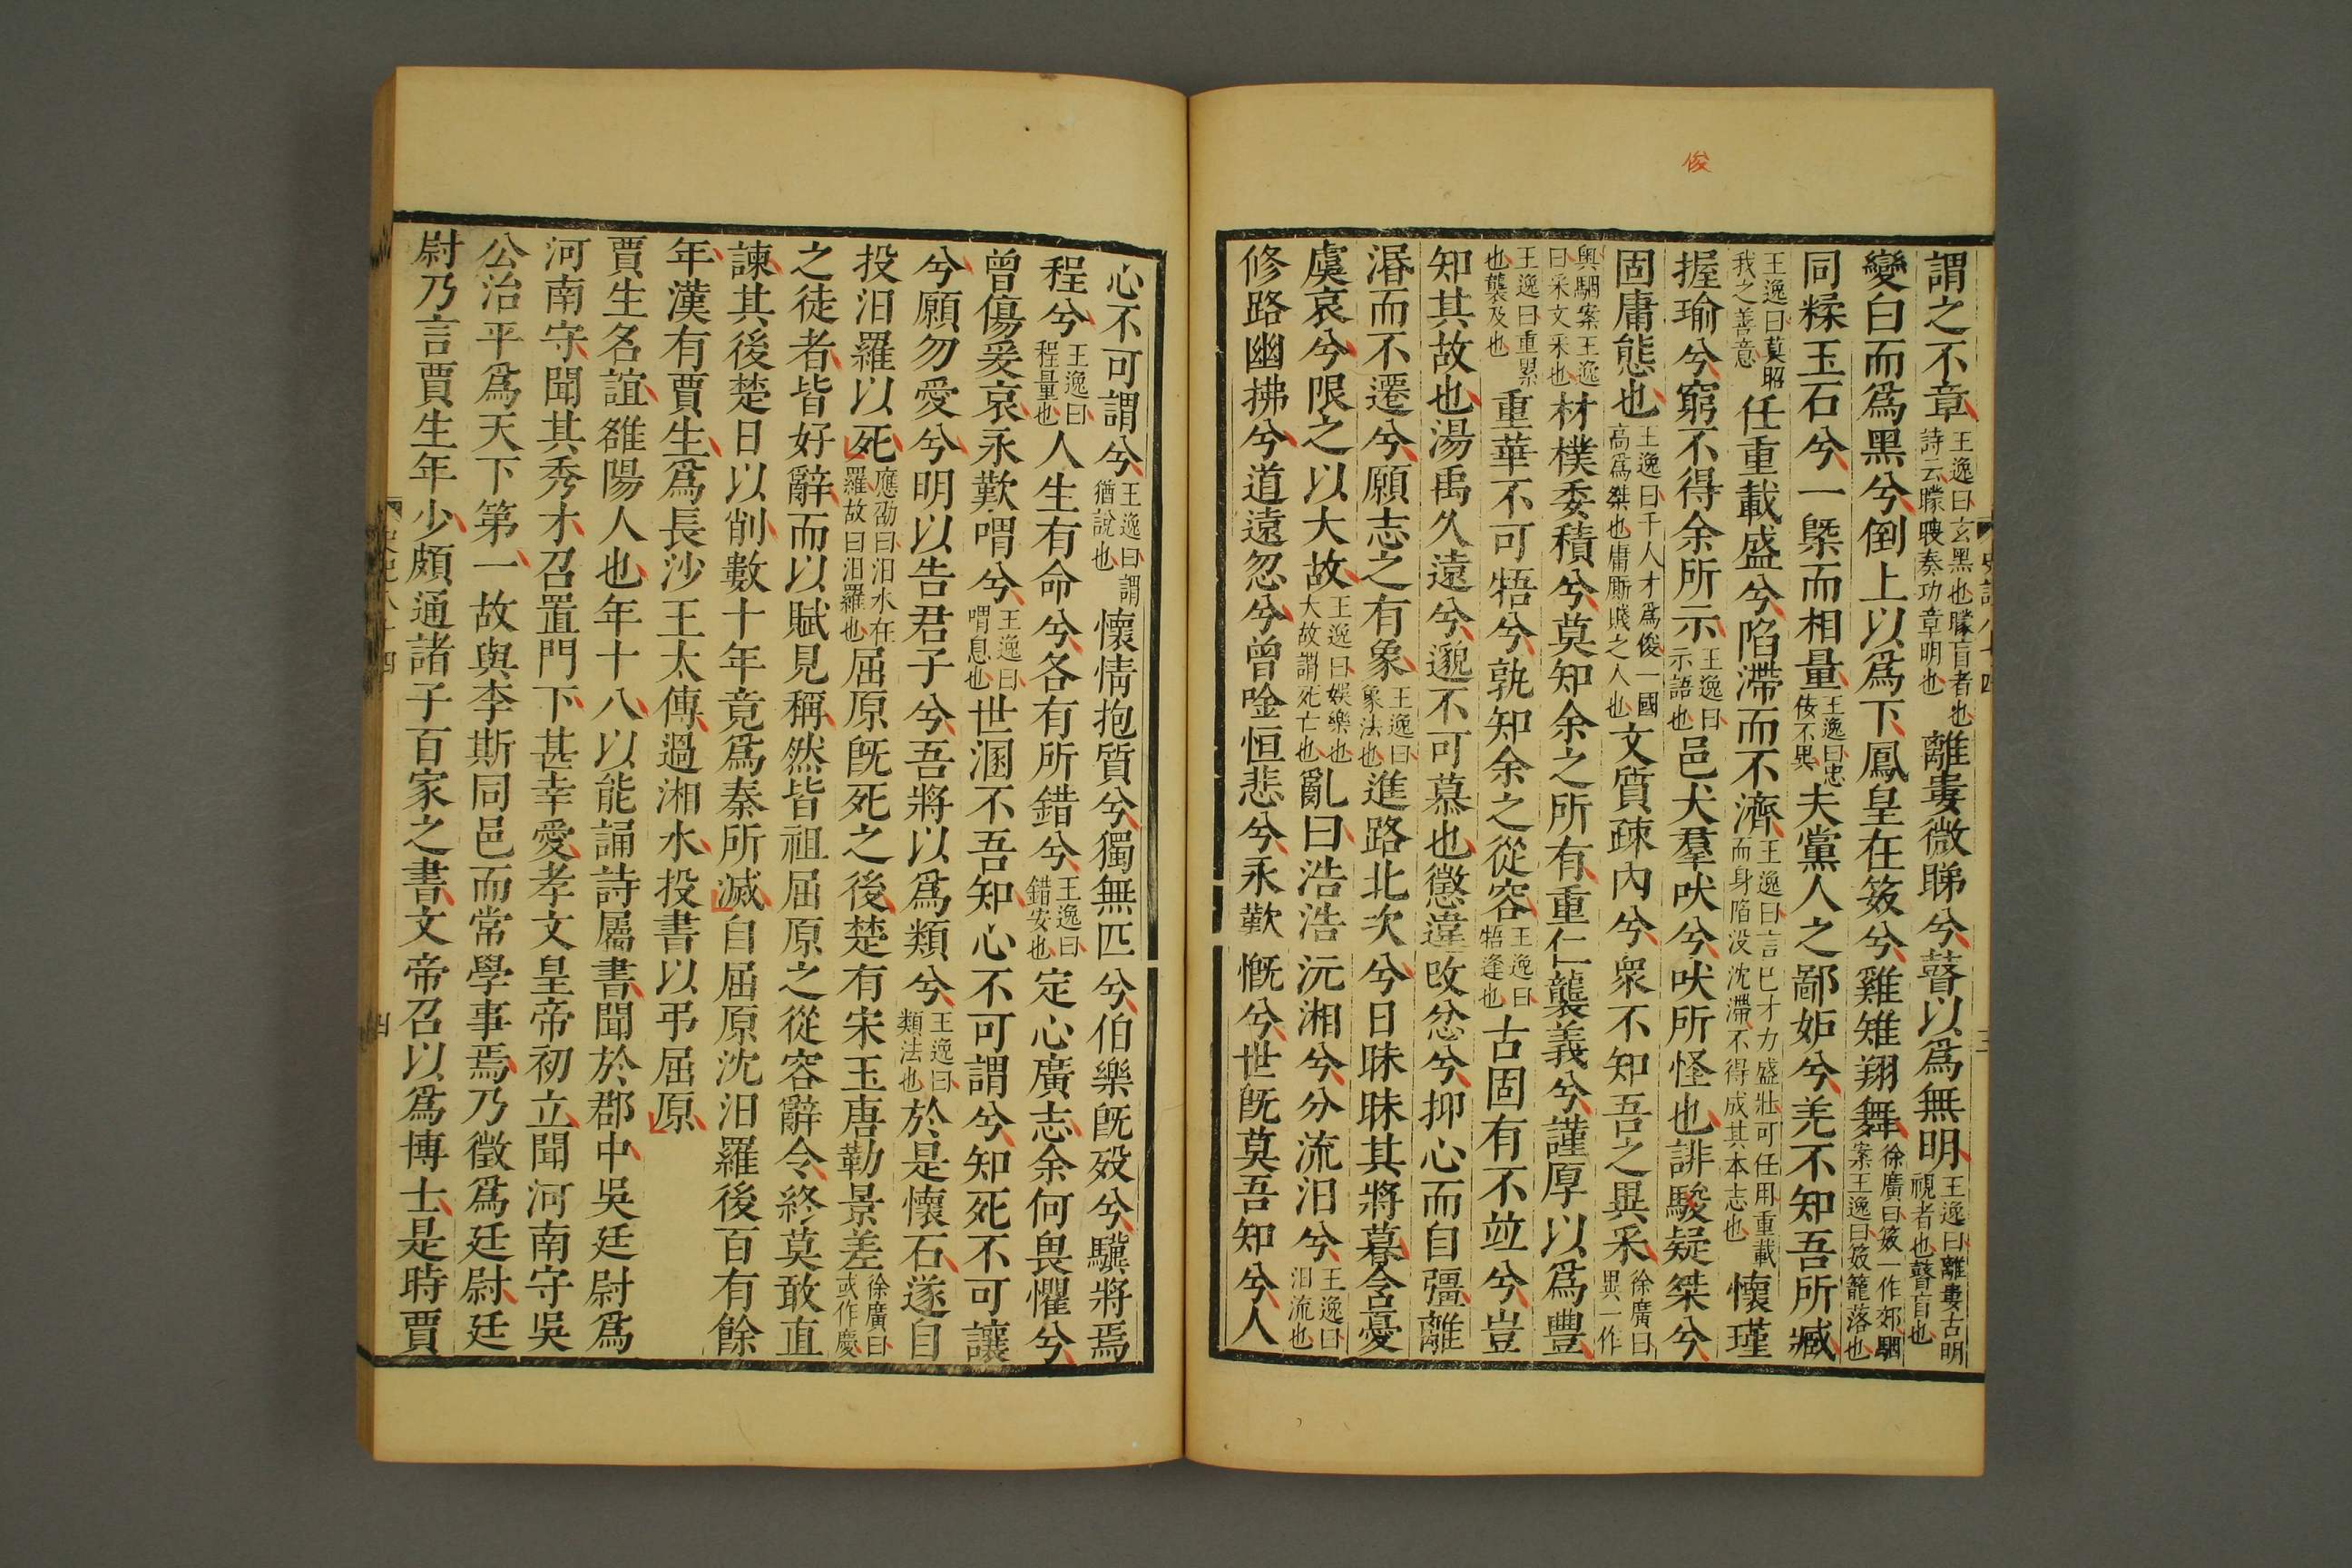 俊
謂之不章王逸曰玄黑也矇盲者也詩云矇瞍奏功章明也離婁微睇兮瞽以爲無明王逸曰離婁古明視者也瞽盲也
變白而爲黑兮倒上以爲下鳳皇在笯兮雞雉翔舞徐廣曰笯一作郊駰案王逸曰笯籠落也
同糅玉石兮一槩而相量王逸曰忠佞不異夫黨人之鄙妒兮羌不知吾所臧
王逸曰莫昭我之善意任重載盛兮陷滯而不濟王逸曰言已才力盛壯可任用重載而身陷没沈滯不得成其本志也懷瑾
握瑜兮窮不得余所示王逸曰示語也邑犬羣吠兮吠所怪也誹駿疑桀兮
固庸態也王逸曰千人才爲俊一國高爲桀也庸厮賤之人也文質疎內兮衆不知吾之異采徐廣曰異一作
奥駰案王逸曰采文采也材樸委積兮莫知余之所有重仁襲義兮謹厚以爲豐
王逸曰重累也襲及也重華不可牾兮孰知余之從容王逸曰牾逢也古固有不竝兮豈
知其故也湯禹久遠兮邈不可慕也懲違改忿兮抑心而自彊離
湣而不遷兮願志之有象王逸曰象法也進路北次兮日昧昧其將暮含憂
虞哀兮限之以大故王逸曰娱樂也大故謂死亡也亂曰浩浩沅湘兮分流汨兮王逸曰汨流也
修路幽拂兮道遠忽兮曾唫恒悲兮永歎慨兮世旣莫吾知兮人
心不可謂兮王逸曰謂猶說也懷情抱質兮獨無匹兮伯樂旣殁兮驥將焉
程兮王逸曰程量也人生有命兮各有所錯兮王逸曰錯安也定心廣志余何畏懼兮
曾傷爰哀永歎喟兮王逸曰喟息也世溷不吾知心不可謂兮知死不可讓
兮願勿愛兮明以告君子兮吾將以爲類兮王逸曰類法也於是懷石遂自
投汨羅以死應劭曰汨水在羅故曰汨羅也屈原旣死之後楚有宋玉唐勒景差徐廣曰或作慶
之徒者皆好辭而以賦見稱然皆祖屈原之從容辭令終莫敢直
諫其後楚日以削數十年竟爲秦所滅自屈原沈汨羅後百有餘
年漢有賈生爲長沙王太傅過湘水投書以弔屈原
賈生名誼雒陽人也年十八以能誦詩屬書聞於郡中吳廷尉爲
河南守聞其秀才召置門下甚幸愛孝文皇帝初立聞河南守吳
公治平爲天下第一故與李斯同邑而常學事焉乃徵爲廷尉廷
尉乃言賈生年少頗通諸子百家之書文帝召以爲博士是時賈